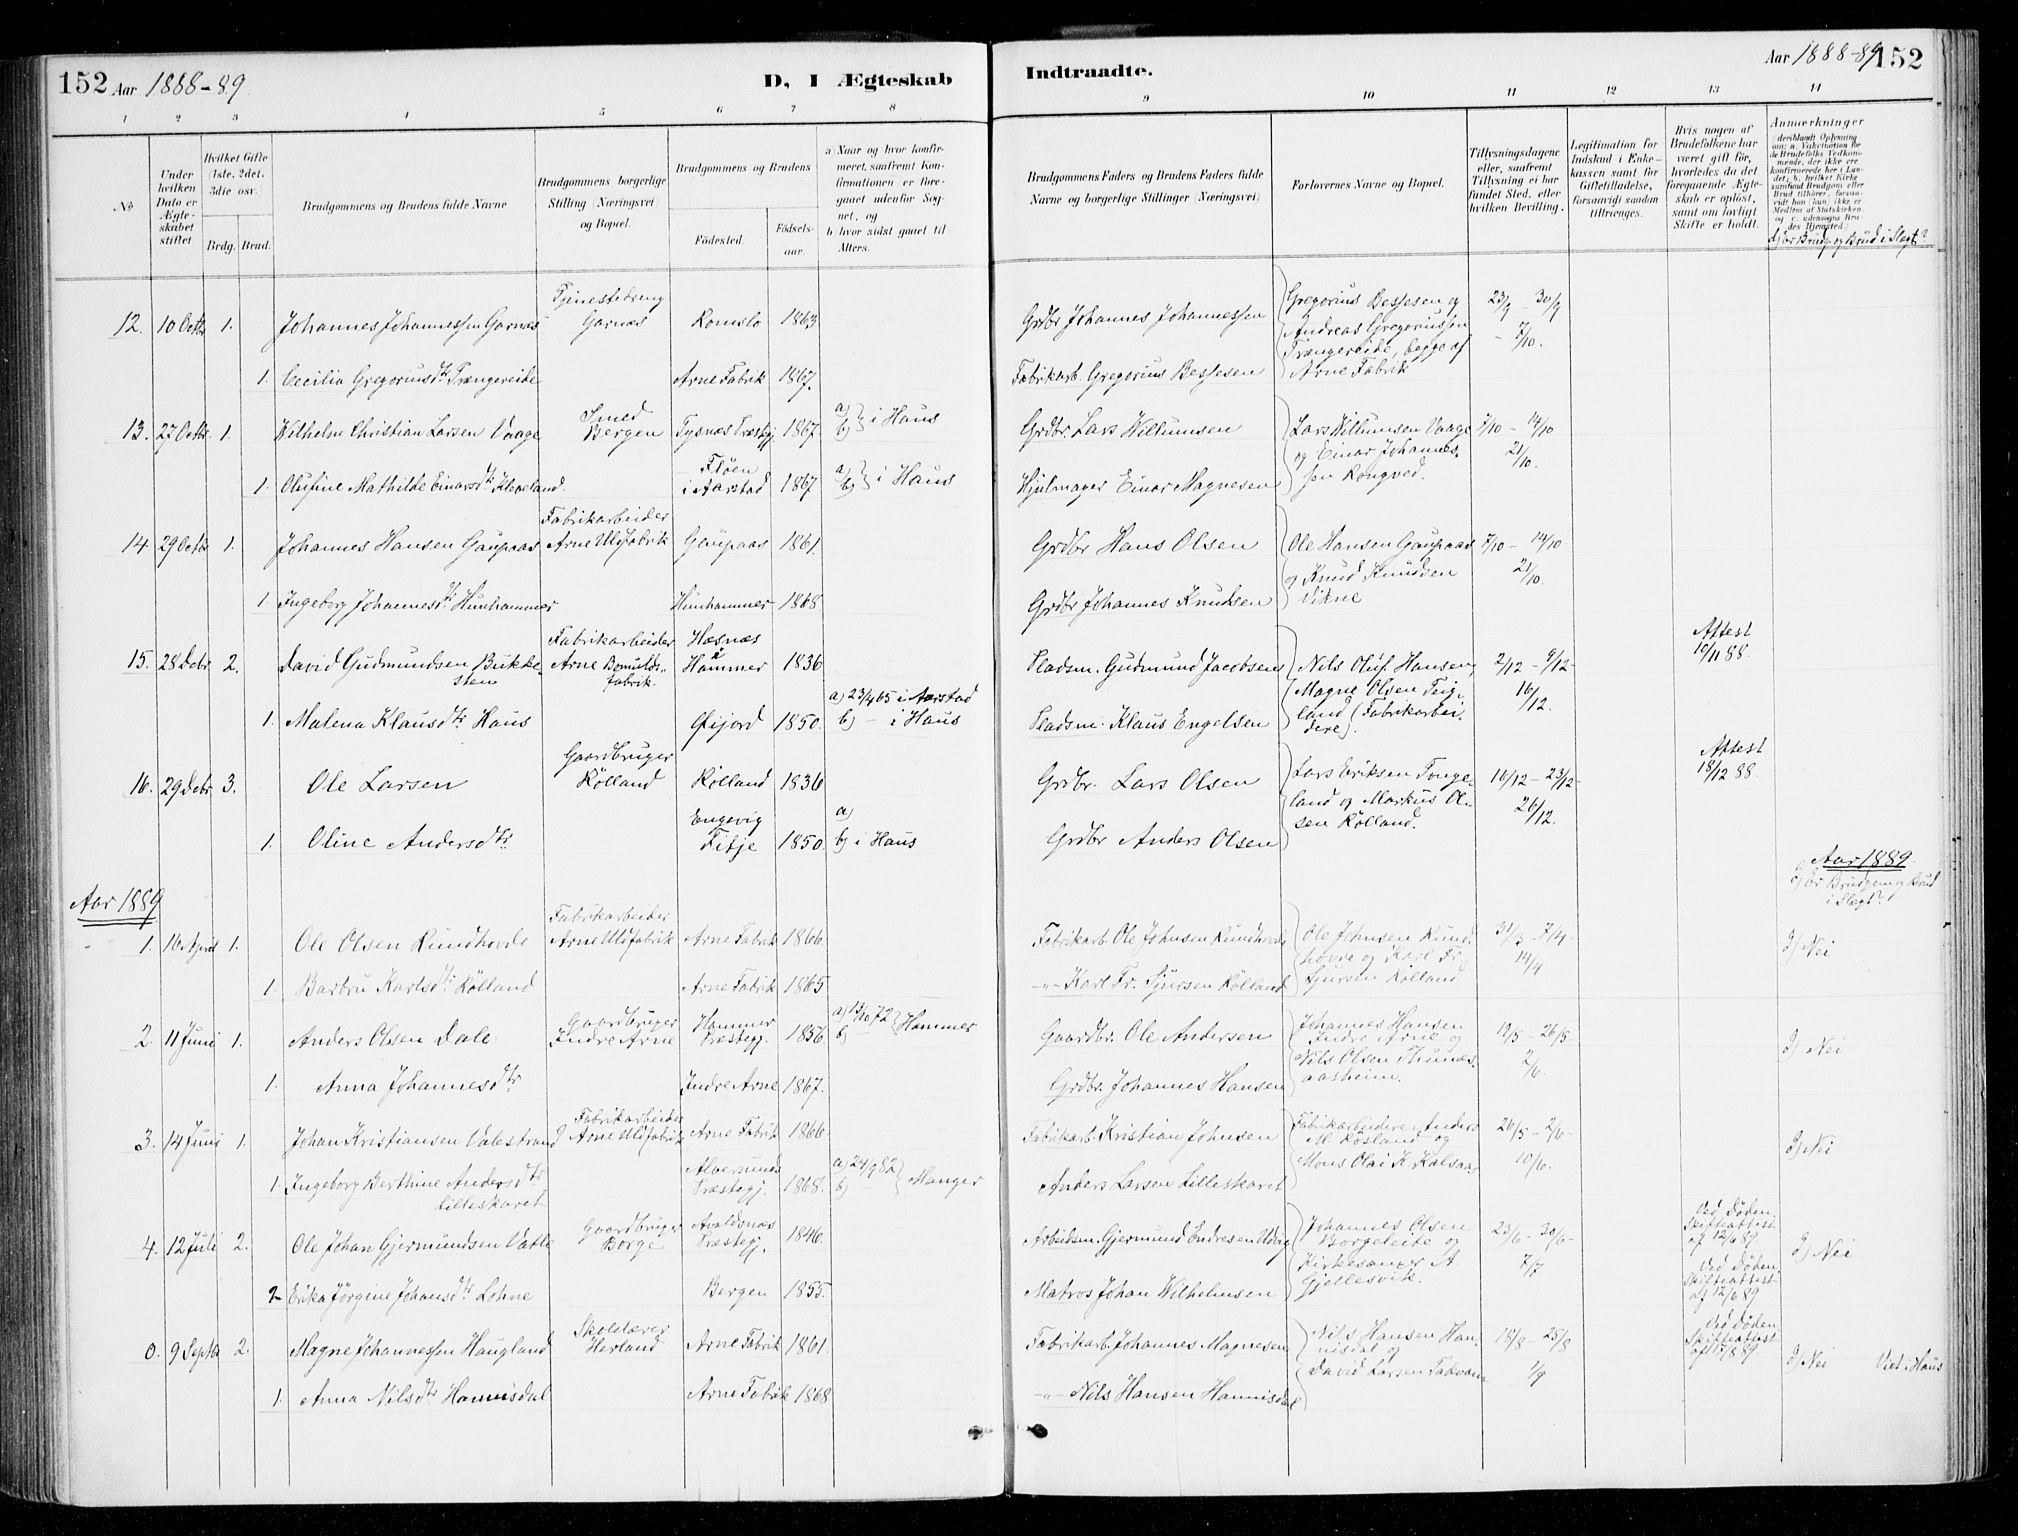 152 Aar 1888-89.
D, I Ægteskab
Indtraadte.
Aar 1888-89 152
1 2 3 4 5 6 7 8 9 10 11 12 13 14
No
Under hvilken Dato er Ægteskabet stiftet.
Hvilket Gifte (1ste, 2det, 3die osv.)
Brdg. Brud.
Brudgommens og Brudens fulde Navne
Brudgommens borgerlige Stilling (Næringsvei) og Bopæl.
Brudgommens og Brudens
Fødested.
Fødselsaar.
a) Naar og hvor konfirmeret, saafremt Konfirmationen er foregaaet udenfor Sognet, og
b) hvor sidst gaaet til Alters.
Brudgommens Faders og Brudens Faders fulde Navne og borgerlige Stillinger (Næringsvei)
Forlovernes Navne og Bopæl.
Tillysningsdagene eller, saafremt Tillysning ei har fundet Sted, efter hvilken Bevilling.
Legitimation for Indskud i Enkekassen samt for Giftetilladelse, forsaavidt saadan tiltrænges.
Hvis nogen af Brudefolkene har været gift før, hvorledes da det foregaaende Ægteskab er opløst, samt om lovligt Skifte er holdt.
Anmærkninger
(deriblandt Oplysning om: a. Vakcination for de Brudefolks Vedkommende, der ikke ere konfirmerede her i Landet; b. hvilket Kirkesamfund Brudgom eller Brud tilhører, forsaavidt han (hun) ikke er Medlem af Statskirken, og c. udensogns Brudes Hjemsted.)
d) Er Brudg. og Brud i Slegt?
12. 10 Octbr 1. Johannes Johannessen Garnæs
Tjenestedreng Garnæs
Romslo 1863
Grdbr Johannes Johannessen
Gregorius Bessesen og Andreas Gregoriussen Trængereide, begge af Arne Fabrik
23/9 - 30/9 - 7/10.
1. Cecilia Gregoriusdtr Trængereide
Arne Fabrik 1867.
Fabrikarb. Gregorius Bessesen
13. 27 Octbr. 1. Wilhelm Christian Larsen Vaage
Smed Bergen
Tysnæs Præstegj. 1867.
a) b) } i Haus
Grdbr. Lars Willumsen
Lars Willumsen Vaage og Einar Johannessen Rongved.
7/10 - 14/10 21/10.
1. Olufine Mathilde Einarsdtr Kleveland.
Fløen i Aarstad 1867
a) b) } i Haus
Hjulmager Einar Magnesen
14. 29 Octbr 1. Johannes Hansen Gaupaas
Fabrikarbeider Arne Uldfabrik
Gaupaas 1861.
Grdbr Hans Olsen
Ole Hansen Gaupaas og Knud Knudsen Vikne
7/10 - 14/10 21/10.
1. Ingeborg Johannesdtr Hunhammer
Hunhammer 1868
Grdbr Johannes Knutsen
15. 28 Debr. 2. David Gudmundsen Bukkesten
Fabrikarbeider Arne Bomuldsfabrik.
Hæsnæs i Hammer 1836
Pladsm. Gudmund Jacobsen
Nils Oluf Hansen, Magne Olsen Teigland (Fabrikarbeidere).
2/12 - 9/12 - 16/12.
Attest 10/11 88.
1. Malena Klausdtr Haus
Øfjord 1850.
a) 23/4 65 i Aarstad
b) - i Haus
Pladsm. Klaus Engelsen
16. 29 Debr 3. Ole Larsen
Gaardbruger Rølland
Rølland 1836
Grdbr. Lars Olsen
Lars Eriksen Tungeland og Markus Olsen Rølland.
16/12 - 23/12 - 26/12.
Attest 18/12 88.
1. Oline Andersdtr
Engevig Fitje 1850.
a)
b) i Haus
Grdbr Anders Olsen
Aar 1889
Aar 1889.
d) Er Brudgom og Brud i Slegt?
1. 16 April 1. Ole Olsen Rundhovde
Fabrikarbeider Arne Uldfabrik
Arne Fabrik 1866.
Fabrikarb. Ole Johnsen Rundhovde
Ole Johnsen Rundhovde og Karl Fr. Sjursen Rølland
31/3 - 7/4 - 14/4.
d) Nei
1. Barbru Karlsdtr Rølland
Arne Fabrik 1865
-"- Karl Fr. Sjursen Rølland
2 11 Juni 1. Anders Olsen Dale
Gaardbruger Indre Arne
Hammer Præstegj. 1856.
a) 13/10 72 b) } Hammer
Gaardbr. Ole Andersen
Johannes Hansen Indre Arne og Nils Olsen Thunæs aasheim.
19/5 - 26/5 - 2/6.
d) Nei
1. Anna Johannesdtr
Indre Arne 1867.
Grdbr. Johannes Hansen
3. 14 Juni 1. Johan Kristiansen Valestrand
Fabrikarbeider Arne Uldfabrik
Arne Fabrik 1866
Fabrikarb. Kristian Johnsen
Fabrikarbeidere Anders M. Røsland og Mons Olai K. Kalsaas
26/5 - 2/6 - 10/6.
d) Nei
1. Ingeborg Berthine Andersdtr Lilleskaret
Alversunds Præstegj. 1868.
a) 24/9 82 b) } Manger
Anders Larsen Lilleskaret
4. 12 Juli 2. Ole Johan Gjermundsen Vatle
Gaardbruger Borge
Avaldsnæs Præstegj. 1846.
Arbeidsm. Gjermund Endresen Udvig
Johannes Olsen Borgeleite og Kirkesanger A. Gjellesvik.
23/6 - 30/6 - 7/7
Ved Døden. Skifteattest af 12/6 89
d) Nei
2 Erika Jørgine Johansdtr Lohne
Bergen 1855.
Matros Johan Wilhelmsen
Ved Døden. Skifteattest af 12/6 89
0. 9 Septbr 2. Magne Johannessen Haugland
Skolelærer Herland
Arne Fabrik 1861.
Fabrikarb. Johannes Magnesen
Nils Hansen Hannisdal og David Larsen Takvam
18/8 - 25/8 1/9
Ved Døden Skifteattest af 17/8 89
d) Nei Viet i Haus
1. Anna Nilsdtr Hannisdal
Arne Fabrik 1868
-"- Nils Hansen Hannisdal